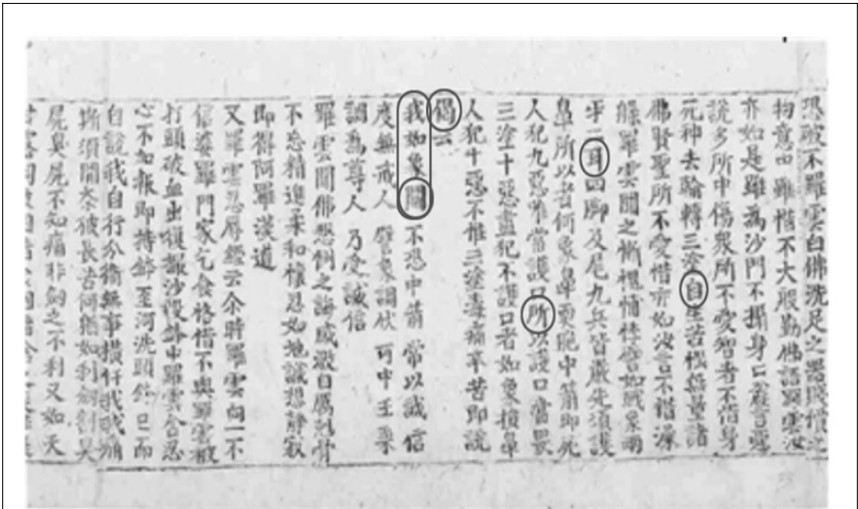 恐破不羅雲白佛洗足之器賤價之
物意中雖惜不大殷勤佛語羅雲汝
亦如是雖為沙門不攝身口麁言惡
說多所中傷眾所不愛智者不惜身
死神去輪轉三塗自生苦惱無量諸
佛賢聖所不愛惜亦如汝言不惜澡
槃羅雲聞之慚愧怖悸譬如戰象兩
牙二耳四脚及尾九兵皆嚴先須護
鼻所以者何象鼻軟脆中箭即死
人犯九惡唯當護口所以護口當畏
三塗十惡盡犯不護口者如象損鼻
人犯十惡不惟三塗毒痛辛苦即說
偈云
我如象鬪 不恐中箭 常以誠信
度無戒人 譬象調伏 可中王乘
調為尊人 乃受誠信
羅雲聞佛懇惻之誨感激自厲剋骨
不忘精進柔和懷忍如地識想靜寂
即得阿羅漢道
又羅雲忍辱經云尒時羅雲向一不
信婆羅門家乞食慳惜不與羅雲被
打頭破血出復撮沙投鉢中羅雲含忍
心不加報即持鉢至河洗頭鉢已而
自說我自行分衛無事橫忤我我痛
斯須間奈彼長苦何猶如利劍割臭
屍臭屍不知痛非劍之不利又如天